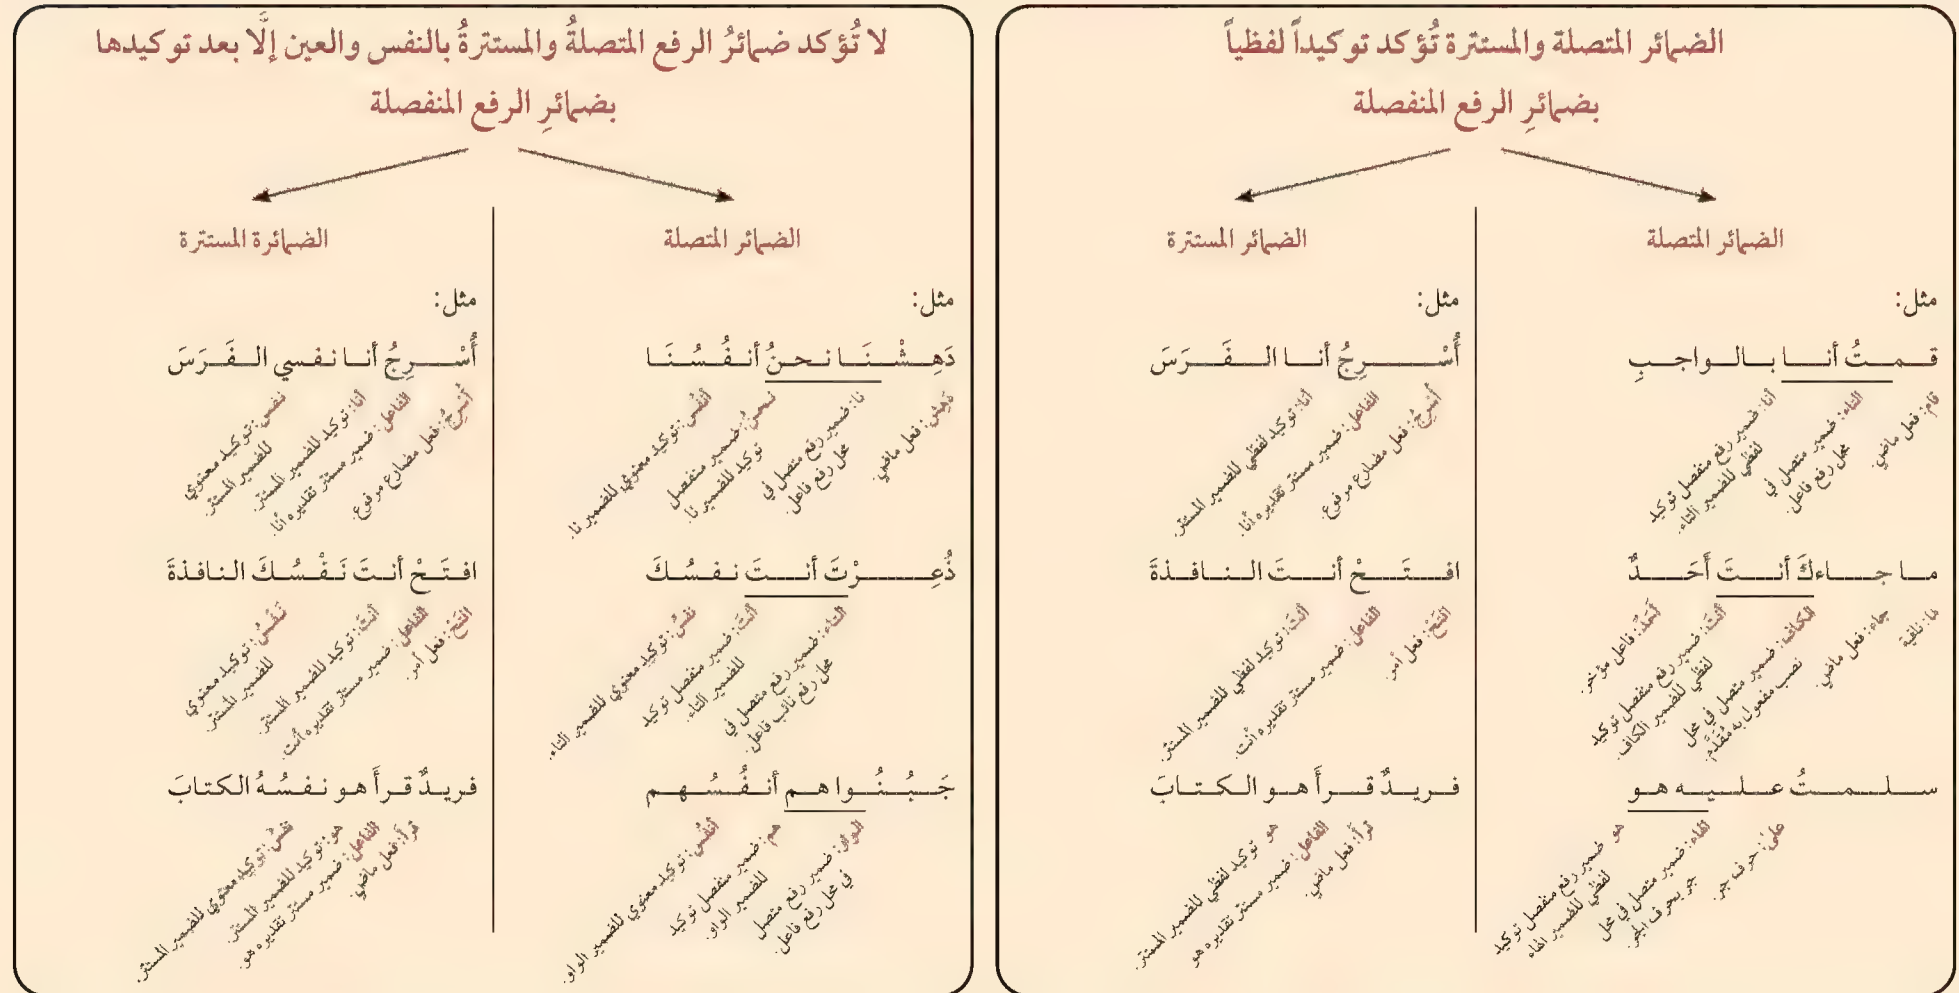 الضمائر المتصلة والمستترة تُؤكد توكيداً لفظياً
بضمائرِ الرفع المنفصلة
الضمائر المتصلة
مثل:
قمتُ أنا بالواجبِ
قام: فعل ماضي.
التاء: ضمير متصل في
محل رفع فاعل.
أنا: ضمير رفع منفصل توكيد
لفظي للضمير التاء.
ما جاءكَ أنتَ أَحَدٌ
ما: نافية
جاء: فعل ماضي.
الكاف: ضمير متصل في محل
نصب مفعول به مُقَدَّم.
أنتَ: ضمير رفع منفصل توكيد
لفظي للضمير الكاف.
أَحَدٌ: فاعل مؤخر.
سلمتُ عليه هو
على: حرف جر.
الهاء: ضمير متصل في محل
جر بحرف الجر.
هو ضمير رفع منفصل توكيد
لفظي للضمير الهاء
الضمائر المستترة
مثل:
أُسْرِجُ أنا الفَرَسَ
أُسْرِجُ: فعل مضارع مرفوع.
الفاعل: ضمير مستتر تقديره أنا.
أنا: توكيد لفظي للضمير المستتر.
افتَحْ أنتَ النافذةَ
افتَحْ: فعل أمر.
الفاعل: ضمير مستتر تقديره أنت.
أنتَ: توكيد لفظي للضمير المستتر.
فريدٌ قرأَ هو الكتابَ
قرأَ: فعل ماضي.
الفاعل: ضمير مستتر تقديره هو
هو توكيد لفظي للضمير المستتر.
لا تُؤكد ضمائرُ الرفع المتصلةُ والمستترةُ بالنفس والعين إلَّا بعد توكيدها
بضمائرِ الرفع المنفصلة
الضمائر المتصلة
مثل:
دَهِشْنَا نحنُ أنفُسُنَا
دَهِش: فعل ماضي.
نا: ضمير رفع متصل في
محل رفع فاعل.
نحنُ: ضمير منفصل
توكيد للضمير نا.
أنفُس: توكيد معنوي للضمير نا.
ذُعِرْتَ أنتَ نفسُكَ
التاء: ضمير رفع متصل في
محل رفع نائب فاعل.
أنتَ: ضمير منفصل توكيد
للضمير التاء.
نفسُ: توكيد معنوي للضمير التاء.
جَبُنُوا هم أنفُسُهم
الواو: ضمير رفع متصل
في محل رفع فاعل.
هم: ضمير منفصل توكيد
للضمير الواو.
أنفُس: توكيد معنوي للضمير الواو.
الضمائرة المستترة
مثل:
أُسْرِجُ أنا نفسي الفَرَسَ
أُسْرِجُ: فعل مضارع مرفوع.
الفاعل: ضمير مستتر تقديره أنا.
أنا: توكيد للضمير المستتر.
نفس: توكيد معنوي
للضمير المستتر.
افتَحْ أنتَ نَفْسُكَ النافذةَ
افتَحْ: فعل أمر.
الفاعل: ضمير مستتر تقديره أنت.
أنتَ: توكيد للضمير المستتر.
نَفْسُ: توكيد معنوي
للضمير المستتر.
فريدٌ قرأَ هو نفسُهُ الكتابَ
قرأَ: فعل ماضي.
الفاعل: ضمير مستتر تقديره هو.
هو: توكيد للضمير المستتر.
نفسُ: توكيد معنوي للضمير المستتر.